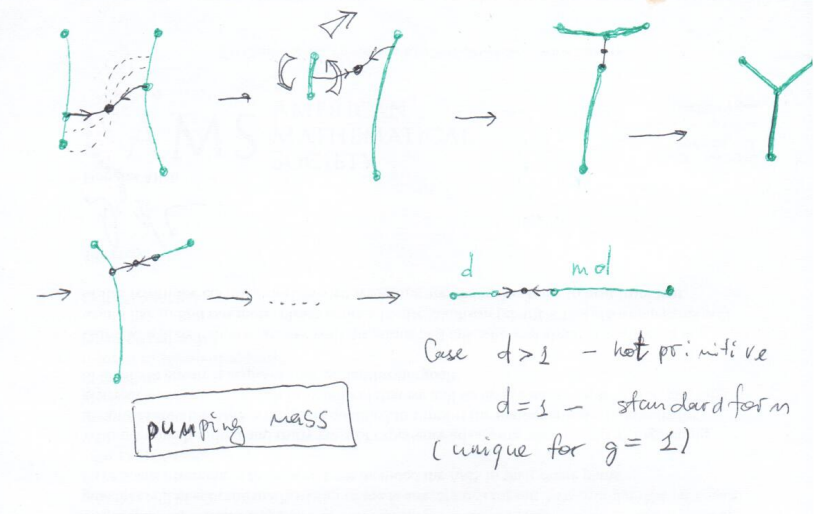 d mod
Case d>1 - not primitive
d=1 - standard form
(unique for g=1)
pumping mass